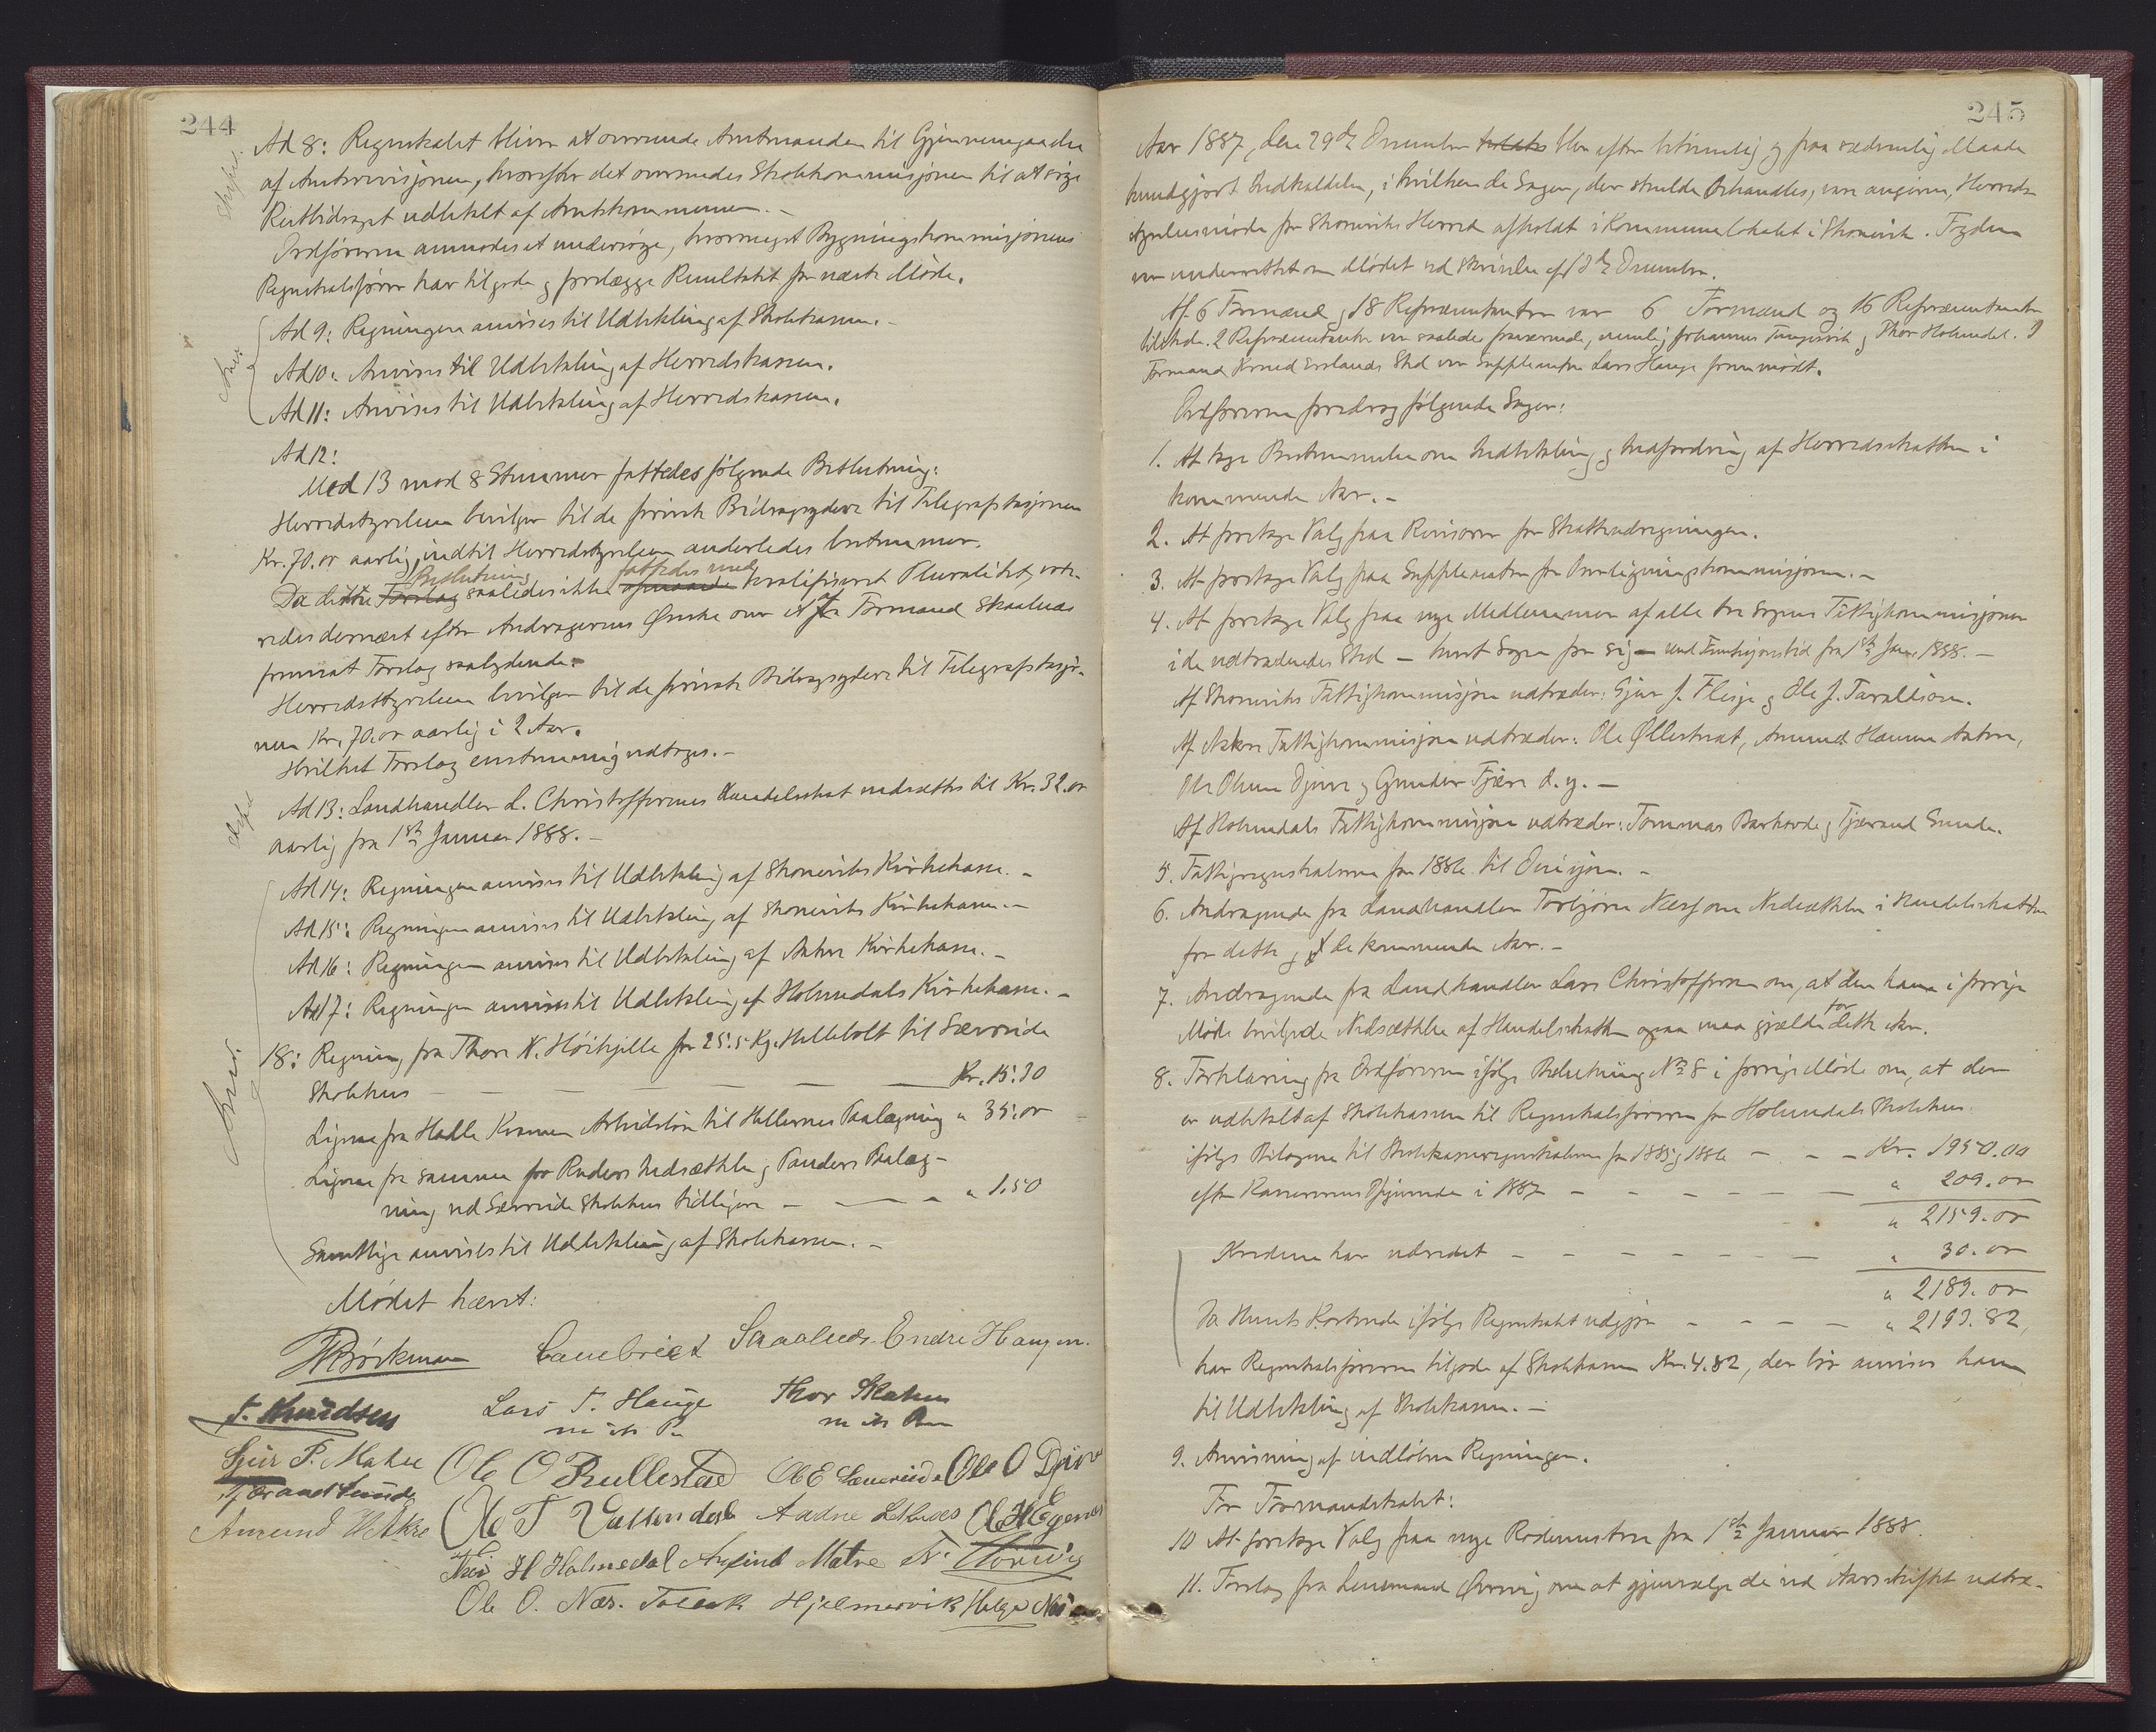 244
Ad 8: Regnskabet bliver at oversende Amtmanden til Gjennemgaaelse
af Amtsrevisjonen, hvorefter det oversendes Skolekommisjonen til at søge
Rentbidraget udbetalt af Amtskommunen.
Ordføreren anmodes at undersøge, hvormeget Bygningskommisjonens
Regnskabsfører har tilgode og forelægge Resultatet for næste Møde.
Ad 9: Regningen anvises til Udbetaling af Skolekassen.
Ad 10: Anvises til Udbetaling af Herredskassen.
Ad 11: Anvises til Udbetaling af Herredskassen.
Ad 12:
Med 13 mod 8 Stemmer fattedes følgende Beslutning:
Herredsstyrelsen bevilger til de private Bidragsydere til Telegrafstasjonen
Kr. 70.00 aarlig, indtil Herredsstyrelsen anderledes bestemmer.
Da dette Forslag Beslutning saaledes ikke opnaaede fattedes med kvalifiseret Pluralitet, vote-
redes dernæst efter Andragernes Ønske over et af Formand Skaalnes
fremsat Forslag saalydende:
Herredsstyrelsen bevilger til de private Bidragsydere til Telegrafstasjo-
nen Kr. 70.00 aarlig i 2 Aar.
Hvilket Forslag enstemmig vedtoges.
Ad 13: Landhandler L. Christoffersens Handelsskat nedsættes til Kr. 32.00
aarlig fra 1ste Januar 1888.
Ad 14: Regningen anvises til Udbetaling af Skoneviks Kirkekasse.
Ad 15: Regningen anvises til Udbetaling af Skoneviks Kirkekasse.
Ad 16: Regningen anvises til Udbetaling af Aakre Kirkekasse.
Ad 17: Regningen anvises til Udbetaling af Holmedals Kirkekasse.
18: Regning fra Thore N. Høikjelle for 25.5 Kg. Hellebolt til Sævreide
Skolehus Kr. 15.30
Ligesaa fra Halle Kvamen Arbeidsløn til Hellernes Paalægning " 35.00
Ligesaa fra samme for Ruders Indsættelse og Panders Paalæg-
ning ved Sævreide Skolehus tidligere " 1.50
Samtlige anvises til Udbetaling af Skolekassen.
Mødet hævet:
Brockmann Lauebried Skaalnes Endre Haugen.
T. Knudsen Lars T. Hauge Thor Skaten
m ih P. m ih Pen
Sjur P. Matre Ole O Bullestad Ole E Sævreide Ole O Djuve
Tjerand Sunde
Amund H Akre Ole T Vattendal Aadne Ole H Egenes
H Holmedal Øyvind Matre N.
Ole O. Næs. Tollak Hjelmervik Helge Næs
245
Aar 1887, den 29de Desember holdtes blev efter betimelig og paa sædvanlig Maade
kundgjort Indkaldelse, i hvilken de Sager, der skulde behandles, var angivne, Herreds-
styrelsesmøde for Skoneviks Herred afholdt i Kommunelokalet i Skonevik. Fogden
var underrettet om Mødet ved Skrivelse af 13de Desember.
Af 6 Formænd og 18 Repræsentanter var 6 Formænd og 16 Repræsentanter
tilstede. 2 Repræsentanter var saaledes fraværende, nemlig Johannes Tungesvik og Thor Holmedal. I
Formand Erslands Sted var Suppleanten Lars Hauge fremmødt.
Ordføreren foredrog følgende Sager:
1. At tage Bestemmelse om Indbetaling og Indfordring af Herredsskatten i
kommende Aar.
2. At foretage Valg paa Revisorer for Skatteudregningen.
3. At foretage Valg paa Suppleanter for Overligningskommisjonen.
4. At foretage Valg paa nye Medlemmer af alle tre Sognes Fattigkommisjoner
i de udtrædendes Sted – hvert Sogn for sig – med Funksjonstid fra 1ste Jan. 1888.
Af Skoneviks Fattigkommisjon udtræder: Sjur J. Flesje og Ole J. Taraldsen.
Af Aakre Fattigkommisjon udtræder: Ole Øllestvet, Amund Hansen Aakre,
Ole Olsen Djuve og Gunder Fjære d. y.
Af Holmedals Fattigkommisjon udtræder: Tommas Barhovde og Tjærand Sunde.
5. Fattigregnskaberne for 1886 til Desisjon.
6. Andragende fra Landhandler Torbjørn Næs om Nedsættelse i Handelsskatten
for dette og de kommende Aar.
7. Andragende fra Landhandler Lars Christoffersen om, at den ham i forrige
Møde bevilgede Nedsættelse af Handelsskatten ogsaa maa gjælde for dette Aar.
8. Forklaring fra Ordføreren ifølge Beslutning No 8 i forrige Møde om, at der
er udbetalt af Skolekassen til Regnskabsføreren for Holmedals Skolehus
ifølge Bilagene til Skolekasseregnskaberne for 1885 og 1886 Kr. 1950.00
efter Kassererens Opgivende i 1887 " 209.00
" 2159.00
Kredsen har udredet " 30.00
" 2189.00
Da Husets Kostende ifølge Regnskabet udgjør " 2193.82,
har Regnskabsføreren tilgode af Skolekassen Kr. 4.82, der bør anvises ham
til Udbetaling af Skolekassen.
9. Anvisning af indløbne Regninger.
For Formandskabet:
10 At foretage Valg paa nye Rodemestre fra 1ste Januar 1888.
11. Forslag fra Lensmand Ørning om at gjenvælge de ved Aarsskiftet udtræ-